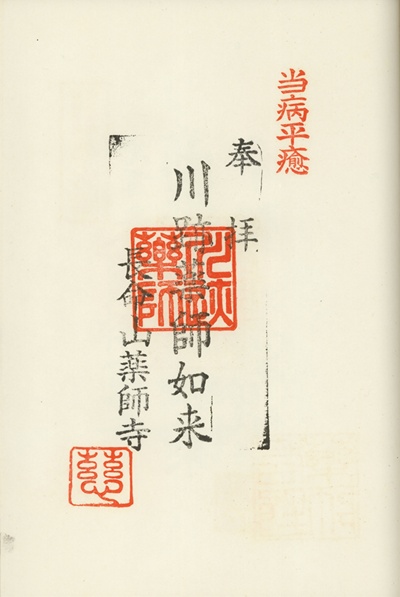 当病平癒
奉拝
川崎薬師如来
長命山薬師寺